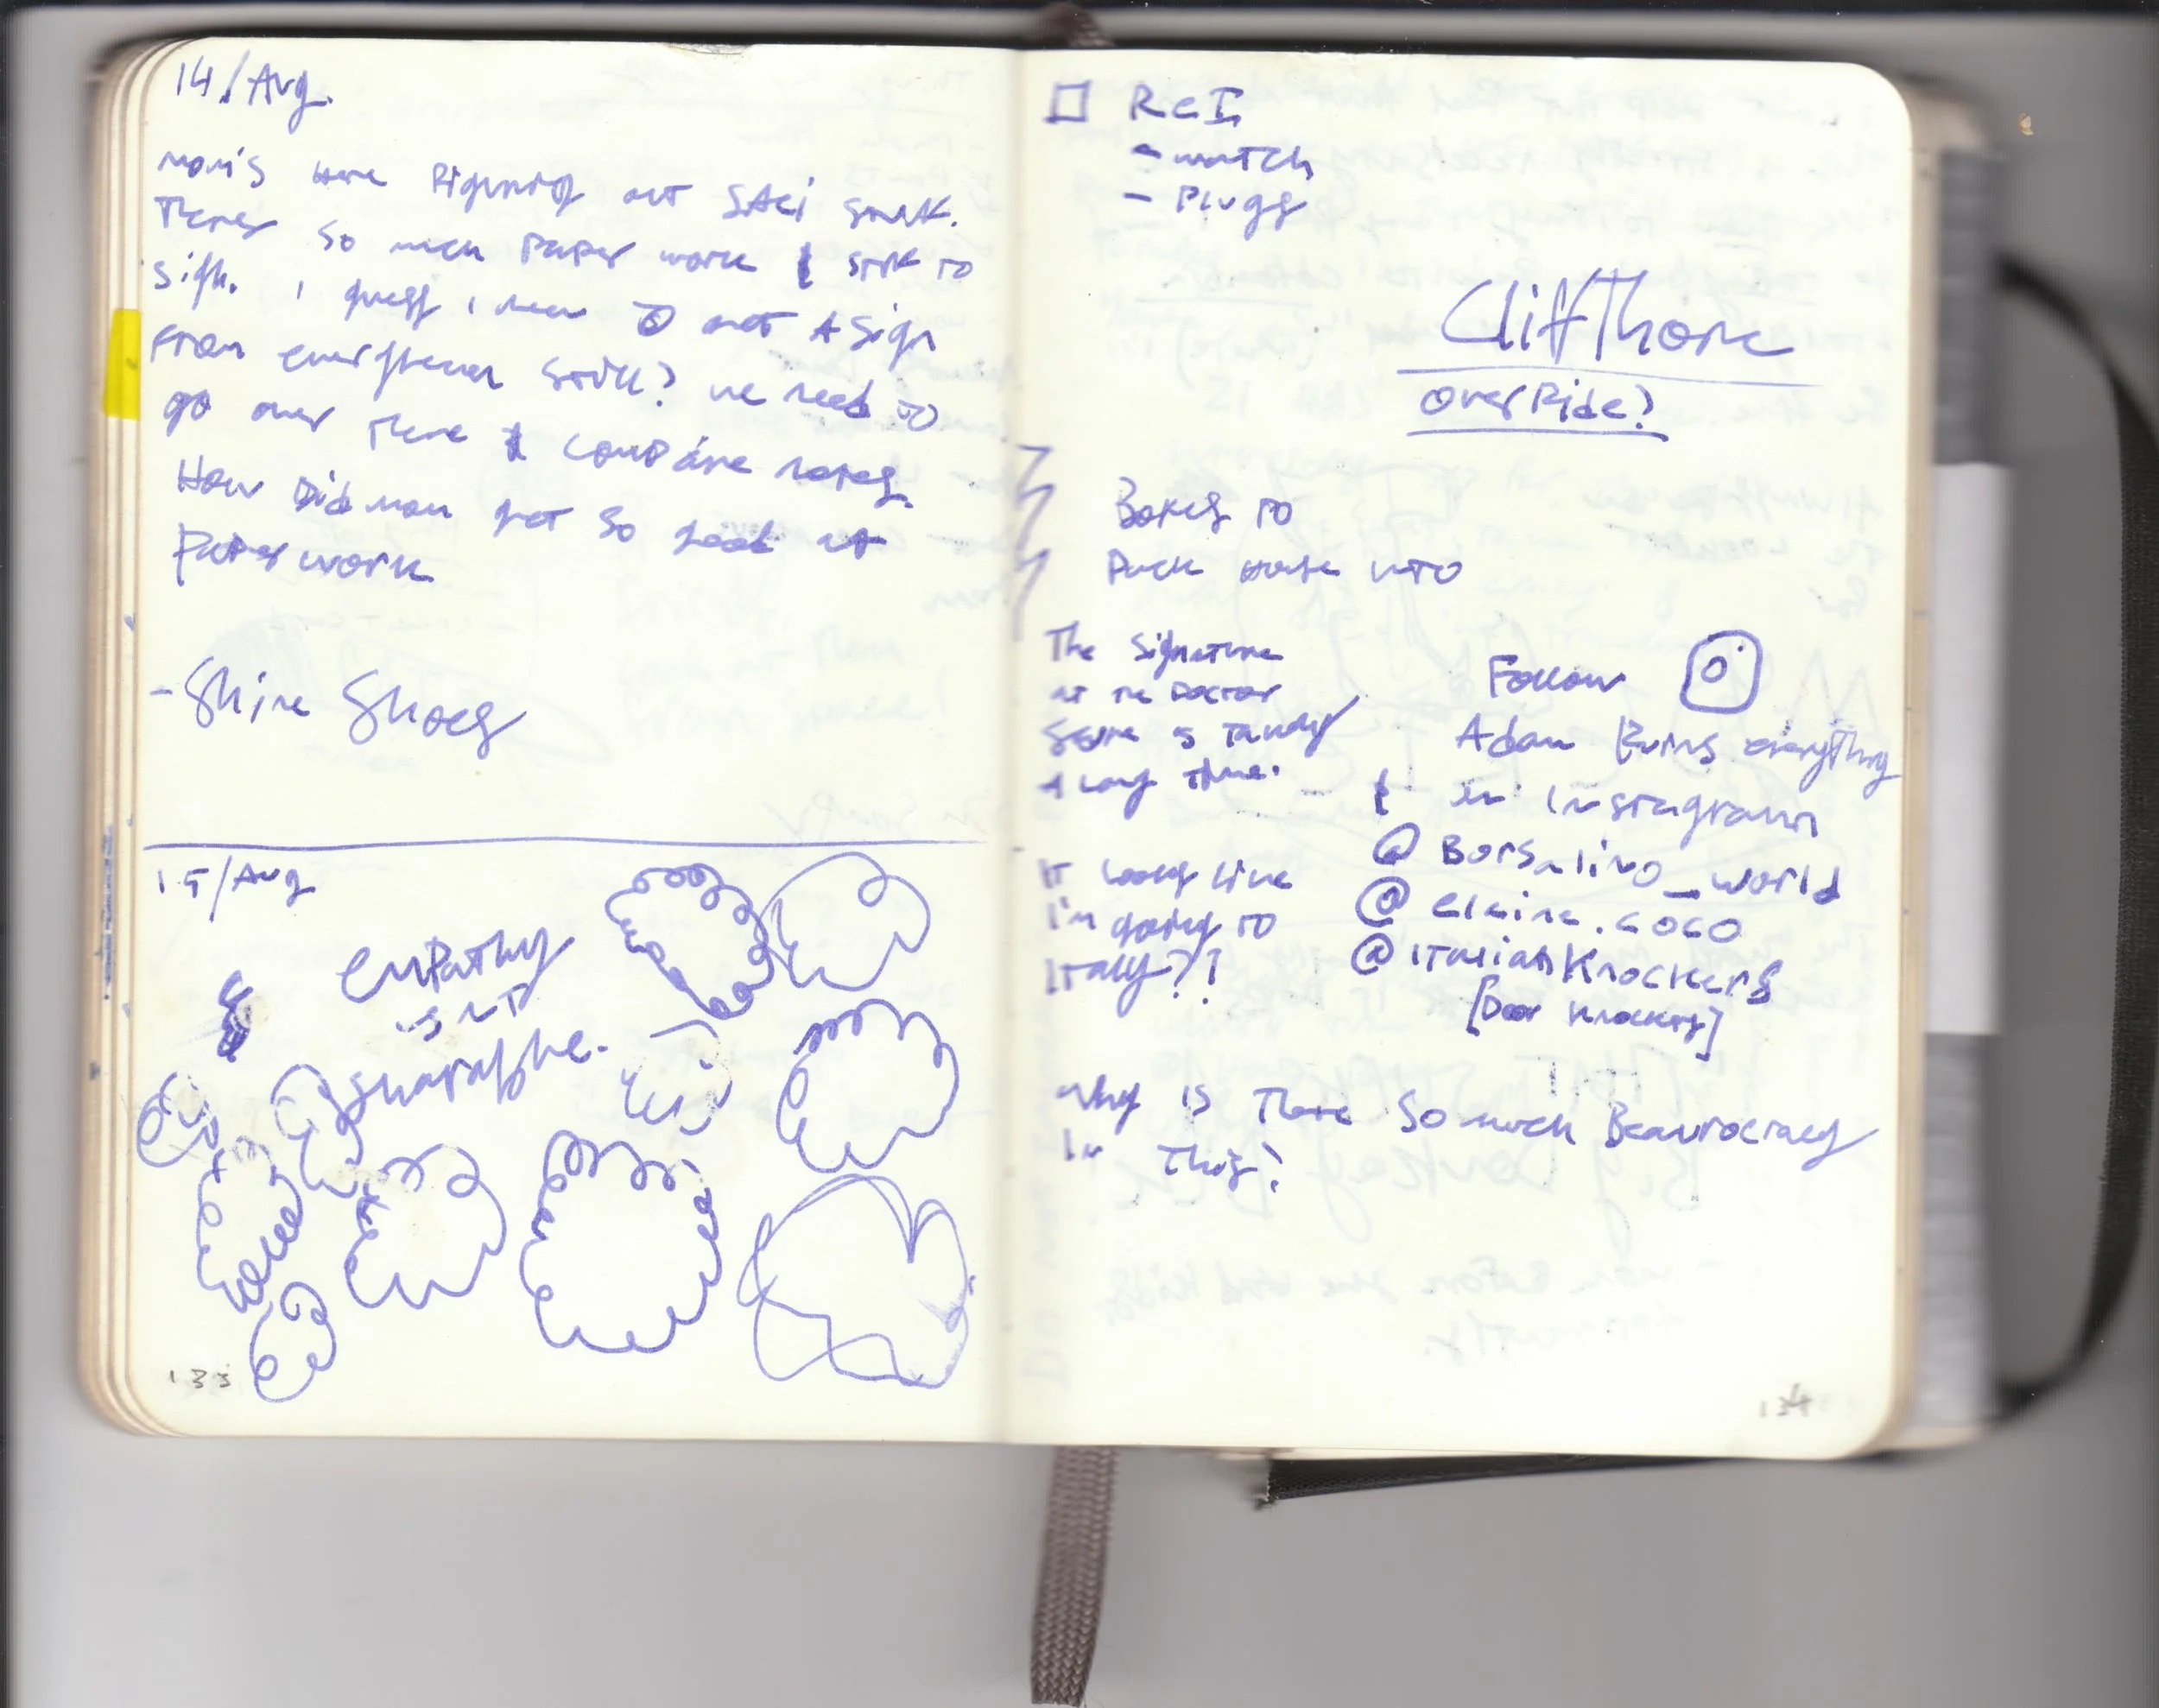 14/Aug.
mom's here Figuring out SACI stuff.
Theres so much Paper work & stuff to
sign. I guess I need to get a sign
From emergencer still? we need to
go over there & compare notes.
How Did mom get so good at
Paper work
- Shine Shoes
15/Aug
empathy
isnt
sharable.
133
REI
- watch
- Plugs
Cliff Thorn
overRide?
Boxes to
Pack house into
The Signature
at the Doctor
Seems is taking
A long time.
It looks like
I'm going to
Italy??
Follow
Adam Ruins everything
& in Instagram
@ Borsalino_world
@ elaine.coco
@ ItalianKnockers
[Door Knockers]
why is There So much Beaurocracy
In This?
134